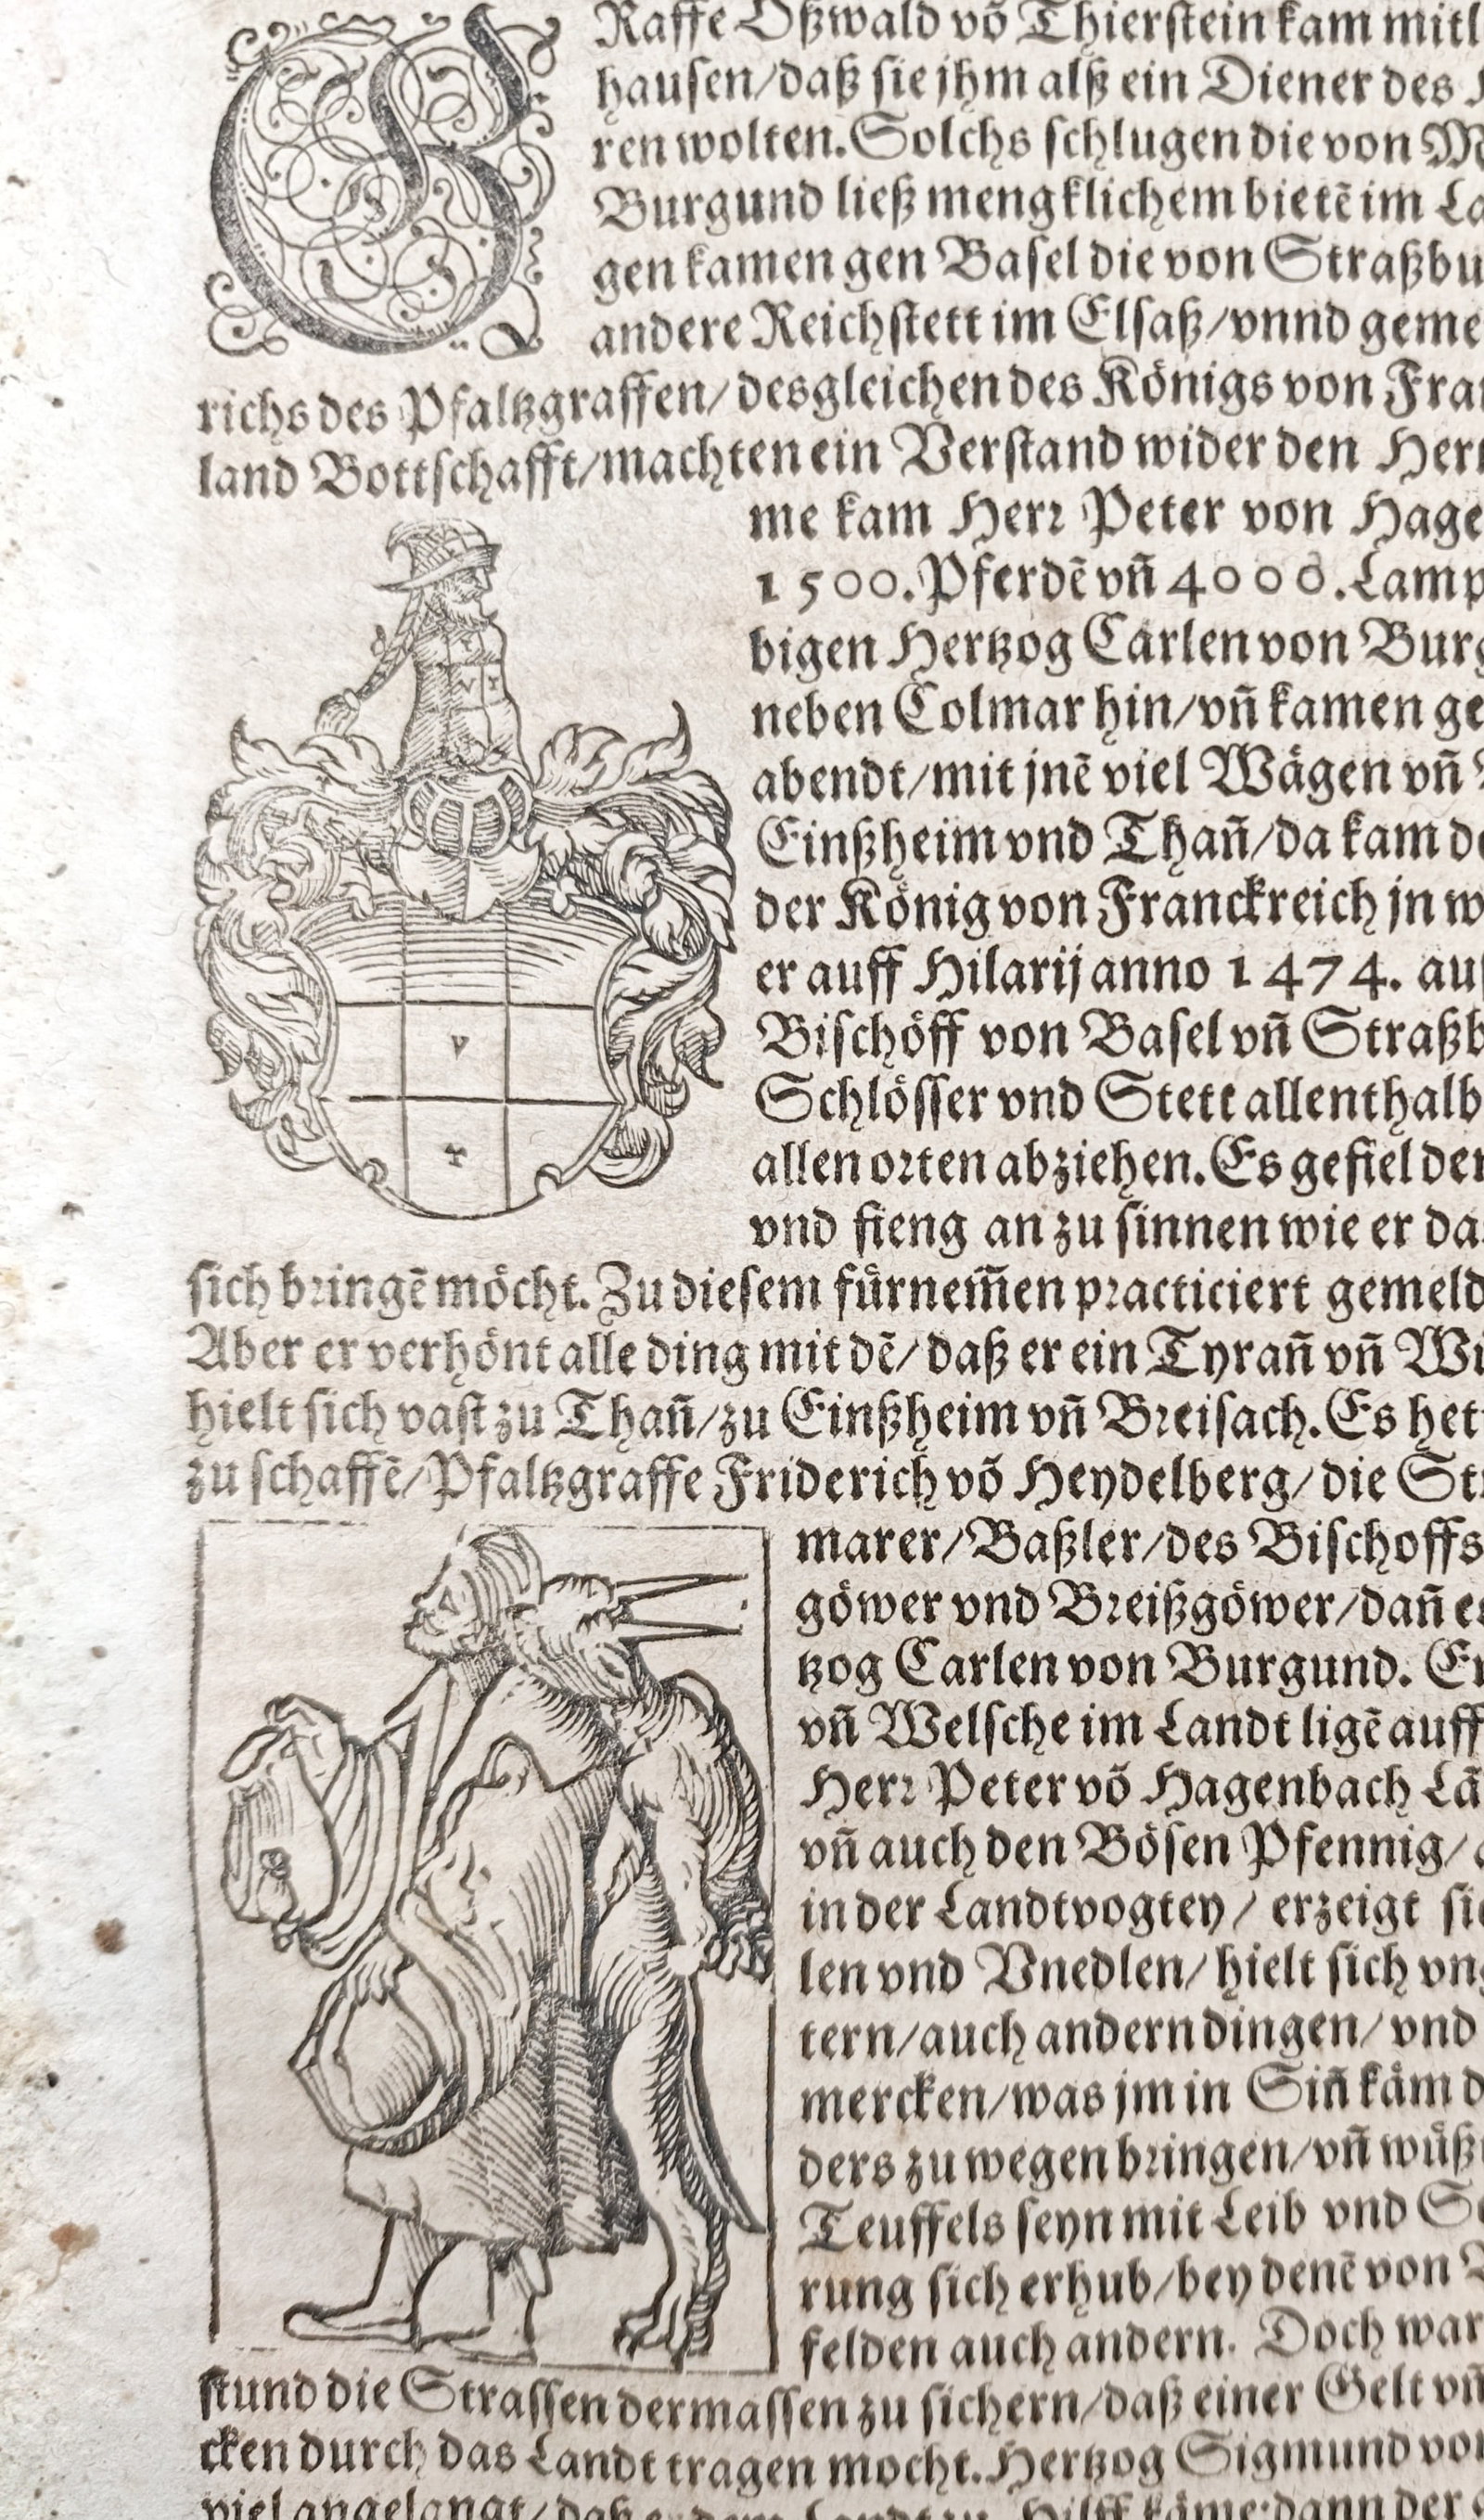 GRaffe Oßwald võ Thierstein kam mitl
hausen/daß sie jhm alß ein Diener des
ren wolten. Solchs schlugen die von M
Burgund ließ mengklichem bietẽ im La
gen kamen gen Basel die von Straßbu
andere Reichstett im Elsaß/vnnd geme
richs des Pfaltzgraffen/desgleichen des Königs von Fra
land Bottschafft/machten ein Verstand wider den Her
me kam Herr Peter von Hage
1500. Pferdẽ vñ 4000. Lamp
bigen Hertzog Carlen von Burg
neben Colmar hin/vñ kamen ge
abendt/mit jnẽ viel Wägen vñ
Einßheim vnd Thañ/da kam d
der König von Franckreich jn w
er auff Hilarij anno 1474. au
Bischöff von Basel vñ Straßb
Schlösser vnd Stett allenthalb
allen orten abziehen. Es gefiel der
vnd fieng an zu sinnen wie er da
sich bringẽ möcht. Zu diesem fürnem̃en practiciert gemeld
Aber er verhönt alle ding mit dẽ/daß er ein Tyrañ vñ Wü
hielt sich vast zu Thañ/zu Einßheim vñ Breisach. Es het
zu schaffẽ/Pfaltzgraffe Friderich võ Heydelberg/die St
V
VI
V
marer/Baßler/des Bischoffs
göwer vnd Breißgöwer/dañ es
tzog Carlen von Burgund. E
vñ Welsche im Landt ligẽ auff
Herr Peter võ Hagenbach Lã
vñ auch den Bösen Pfennig/
in der Landtvogtey/ erzeigt si
len vnd Vnedlen/hielt sich vn
tern/auch andern dingen/vnd
mercken/was jm in Siñ käm d
ders zu wegen bringen/vñ wüß
Teuffels seyn mit Leib vnd S
rung sich erhub/bey denẽ von
felden auch andern. Doch war
stund die Strassen dermassen zu sichern/daß einer Gelt vñ
cken durch das Landt tragen mocht. Hertzog Sigmund vo
viel angelangt/daß er dem Landt zu Hilff käme: dann der